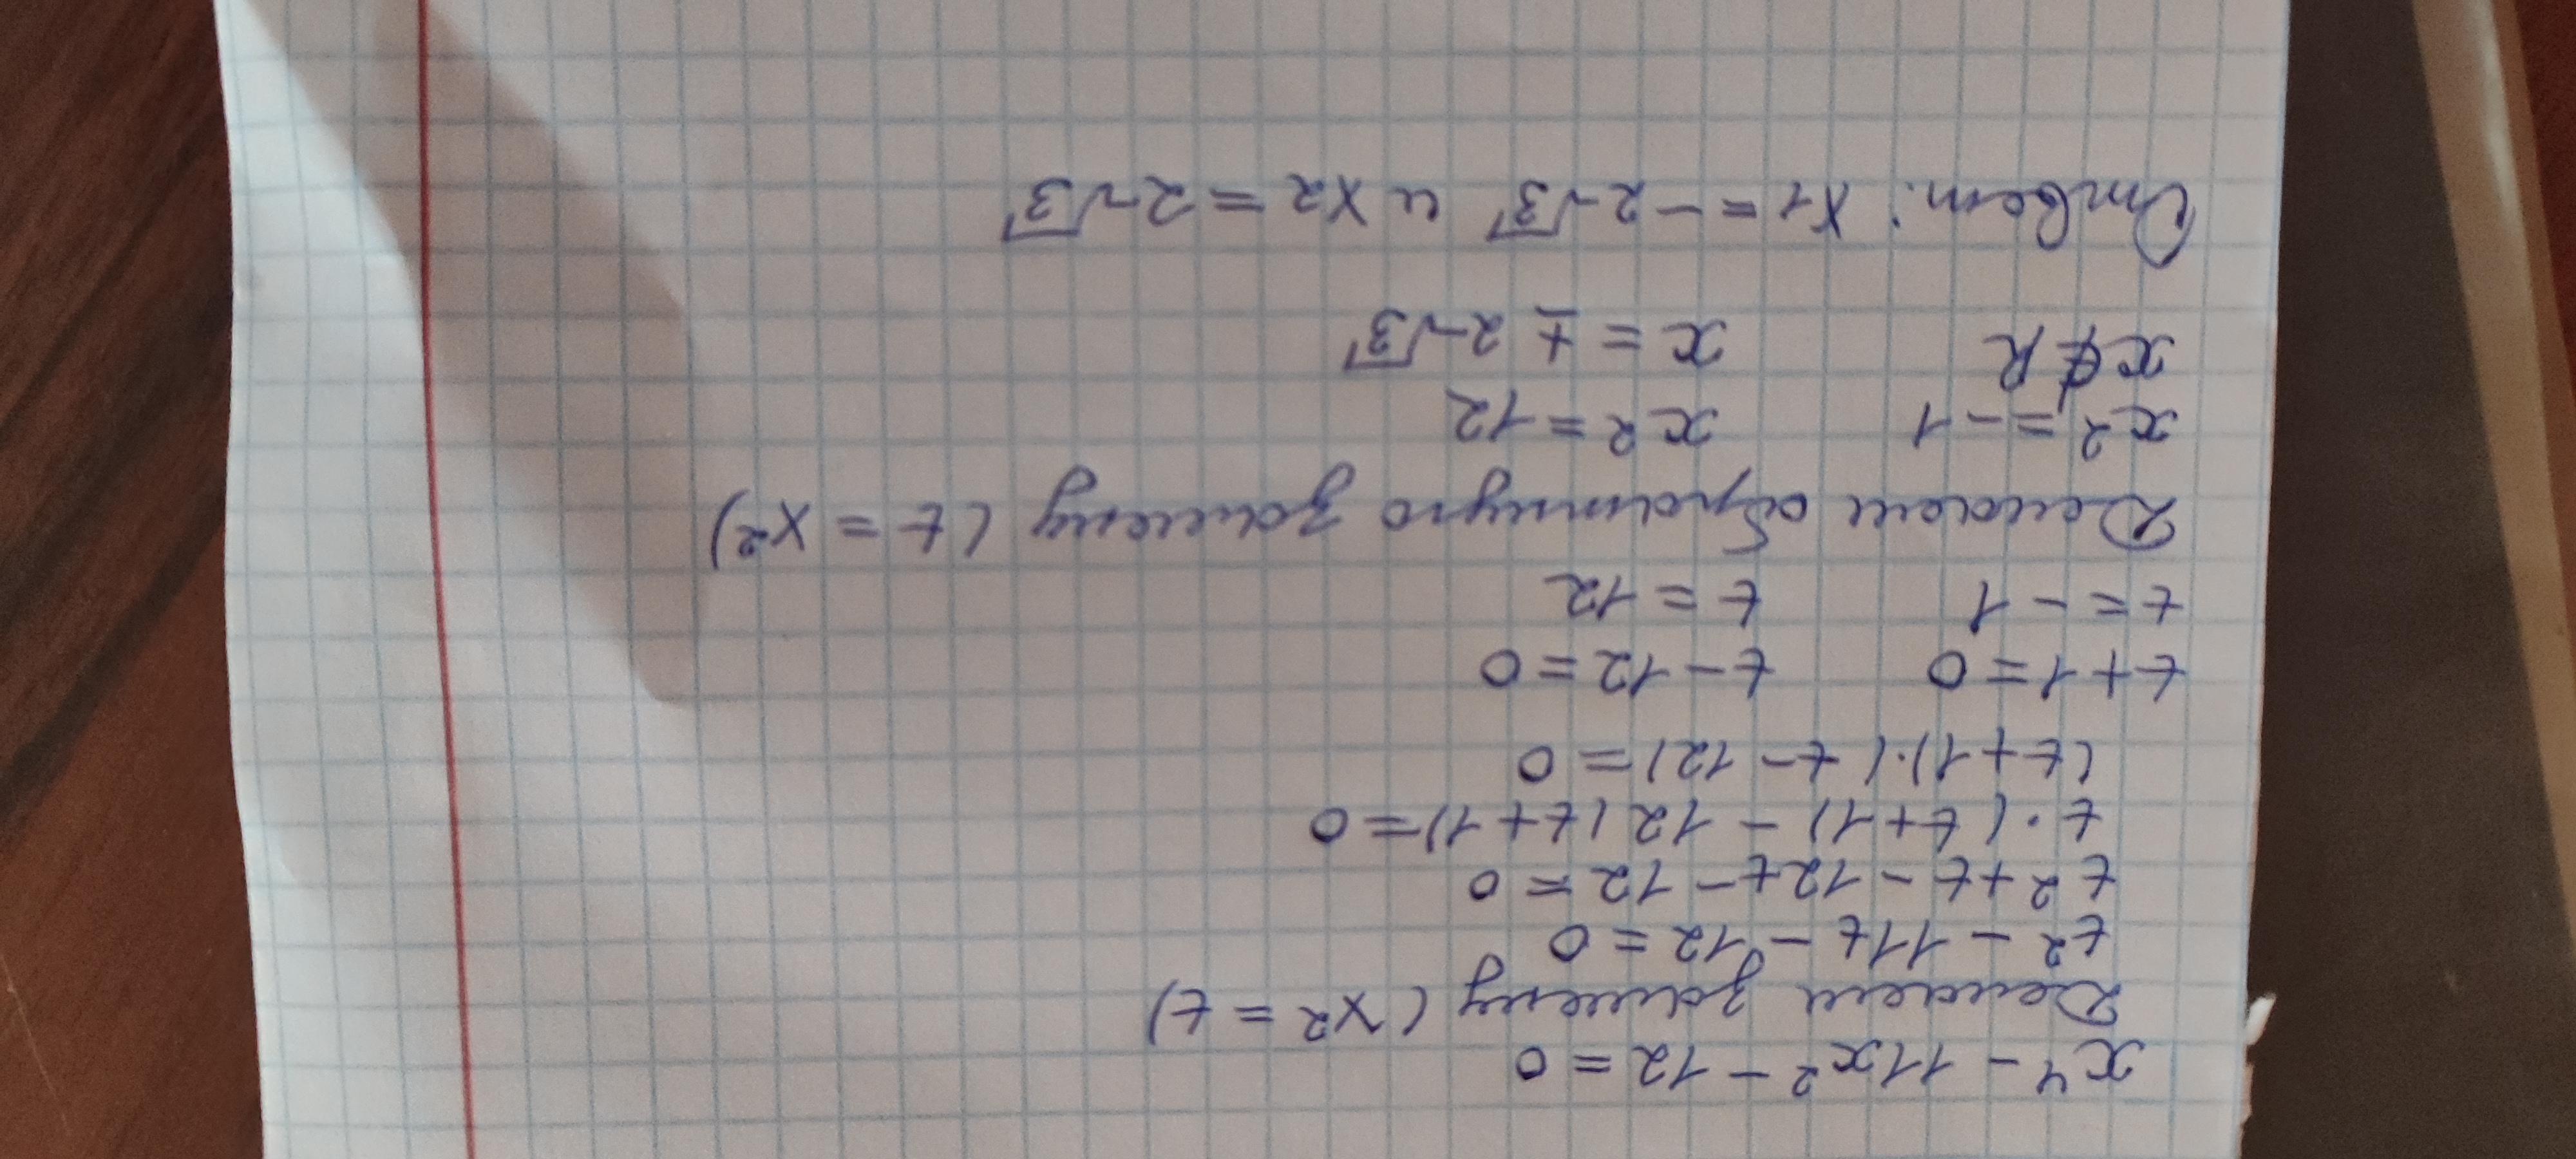 x⁴ - 11x² - 12 = 0
Делаем замену (x2 = t)
t2 - 11t - 12 = 0
t2 + t - 12t - 12 = 0
t · (t + 1) - 12(t + 1) = 0
(t + 1) · (t - 12) = 0
t + 1 = 0 t - 12 = 0
t = - 1 t = 12
Делаем обратную замену (t = x2)
x² = - 1 x2 = 12
x ∉ R x = ± 2√3
Ответ: x1 = - 2√3 и x2 = 2√3